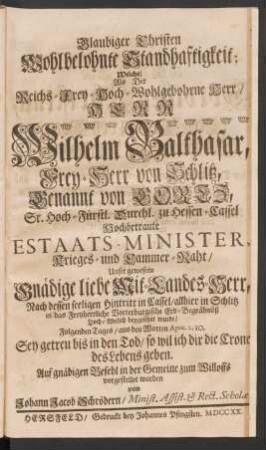 Glaubiger Christen
Wohlbelohnte Standhafftigkeit:
Welche/
Als Der
Reichs-Frey-Hoch-Wohlgebohrne Herr/
HERR
Wilhelm Balthasar,
Frey-Herr von Schlitz,
Genannt von GOERTZ,
Sr. Hoch-Fürstl. Durchl. zu Hessen-Cassel
Hochbetraute
ESTAATS-MINISTER,
Krieges- und Cammer-Raht/
Unser gewesene
Gnädige liebe Mit-Landes-Herr,
Nach dessen seeligen Hintritt in Cassel/ allhier in Schlitz
in das Freyherrliche Vorderburgische Erb-Begräbnüß
beygesetzt wurde/
Folgenden Tages/ aus den Worten Apoc. 2. 10.
Sey getreu bis in den Tod/ so wil ich dir die Crone
des Lebens geben.
Auf gnädigen Befehl in der Gemeine zum Willoffs
vorgestellet worden
von
Johann Jacob Schrödern/ Minist. Assist. & Rect. Scholæ
HERSFELD/ Gedruckt bey Johannes Pfingsten. MDCCXX.